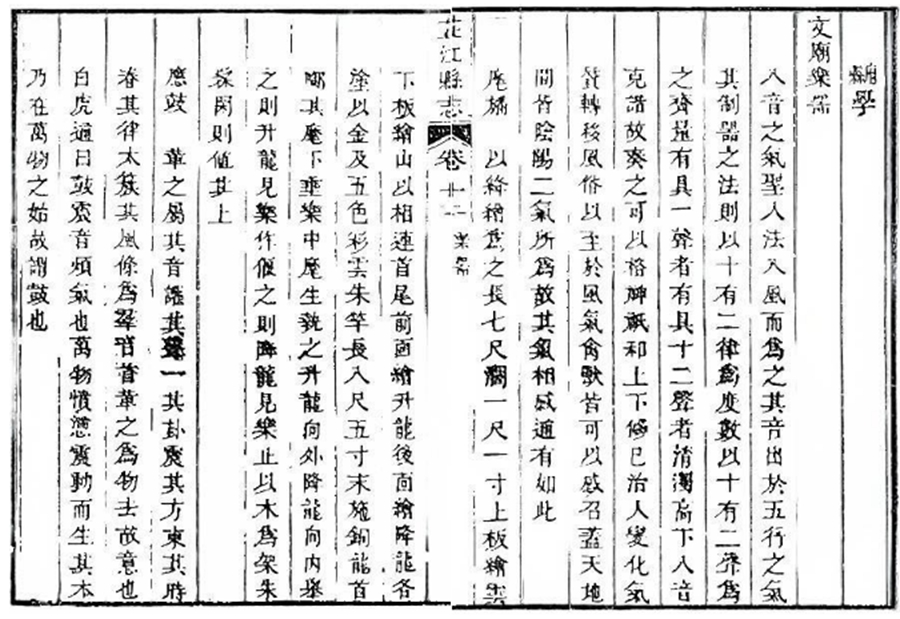 廟學
文廟樂器
八音之氣聖人法八風而為之其音出於五行之氣
其制器之法則以十有二律為度數以十有二聲為
之齊量有具一聲者有具十二聲者清濁高下八音
克諧故奏之可以格神祇和上下修己治人變化氣
質轉移風俗以至於風氣禽獸皆可以感召蓋天地
間皆陰陽二氣所為故其氣相感通有如此
麾旛 以絳繒為之長七尺濶一尺一寸上板繪雲
芷江縣志 卷廿二 樂器
下板繪山以相連首尾前面繪升龍後面繪降龍各
塗以金及五色彩雲朱竿長八尺五寸末施銅龍首
啣其麾下垂樂中麾生執之升龍向外降龍向內舉
之則升龍見樂作偃之則降龍見樂止以木為架朱
髹閑則植其上
應鼓 革之屬其音讙其聲一其卦震其方東其時
春其律太簇其風條為眾音首革之為物去故意也
白虎通曰鼓震音煩氣也萬物憤懣震動而生其本
乃在萬物之始故謂鼓也